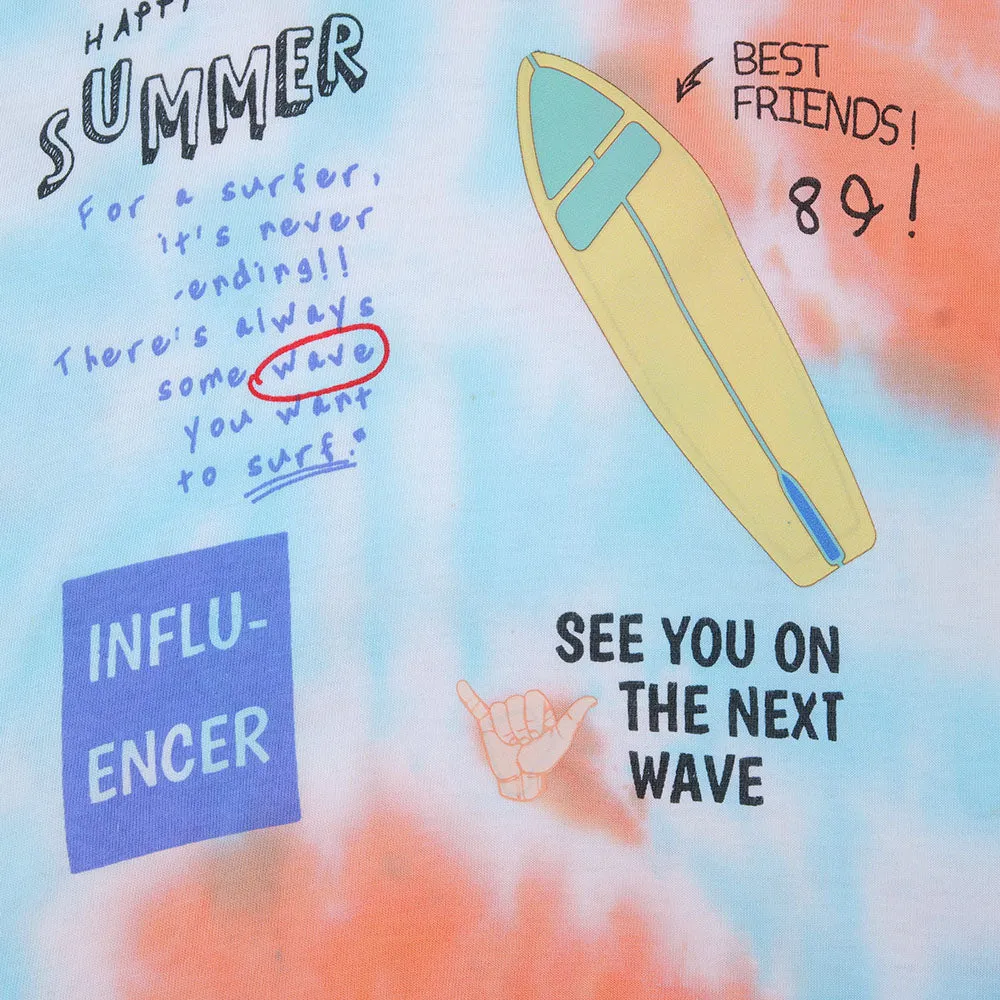 HAPPY
SUMMER
For a surfer,
it's never
-ending!!
There's always
some wave
you want
to surf."
BEST
FRIENDS!
89!
INFLU-
ENCER
SEE YOU ON
THE NEXT
WAVE